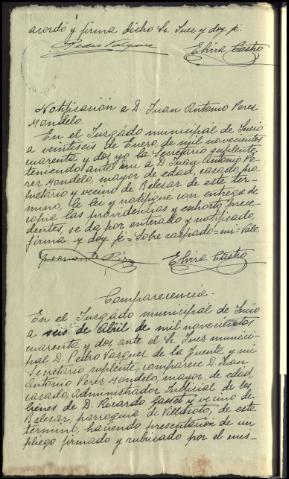 acordó y firma dicho Sr Juez y doy fé
Elvira Castro
Notificación a D. Juan Antonio Perez
Mondelo.
En el Juzgado municipal de Incio
a veintiseis de Enero de mil novecientos
cuarenta y dos yo la Secretario suplente,
teniendo ante mi a D. Juan Antonio Pe-
rez Mondelo, mayor de edad, casado, pro-
pietario y vecino de Relesar de este ter-
mino, le lei y notifiqué con entrega de
copia las providencias y exhorto prece-
dentes, se da por enterado y notificado,
firma y doy fé = Sobre raspado = mi = Vale.
Elvira Castro
Comparecencia.
En el Juzgado municipal de Incio
a seis de Abril de mil novecientos
cuarenta y dos ante el Sr Juez munici-
pal D. Pedro Vazquez de la Fuente y mi
Secretario suplente, comparece D. Juan
Antonio Peres Mondelo, mayor de edad
casado, Administrador Judicial de los
bienes de D. Ricardo Gasset y vecino de
Relesar, parroquia de Viladrio, de este
término, haciendo presentación de un
pliego firmado y rubricado por el mis-